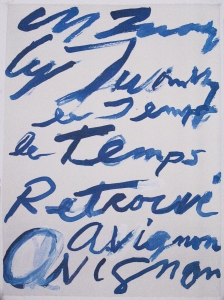 Cy Twombly
le Temps
le Temps
Retrouvé
avignon
avignon